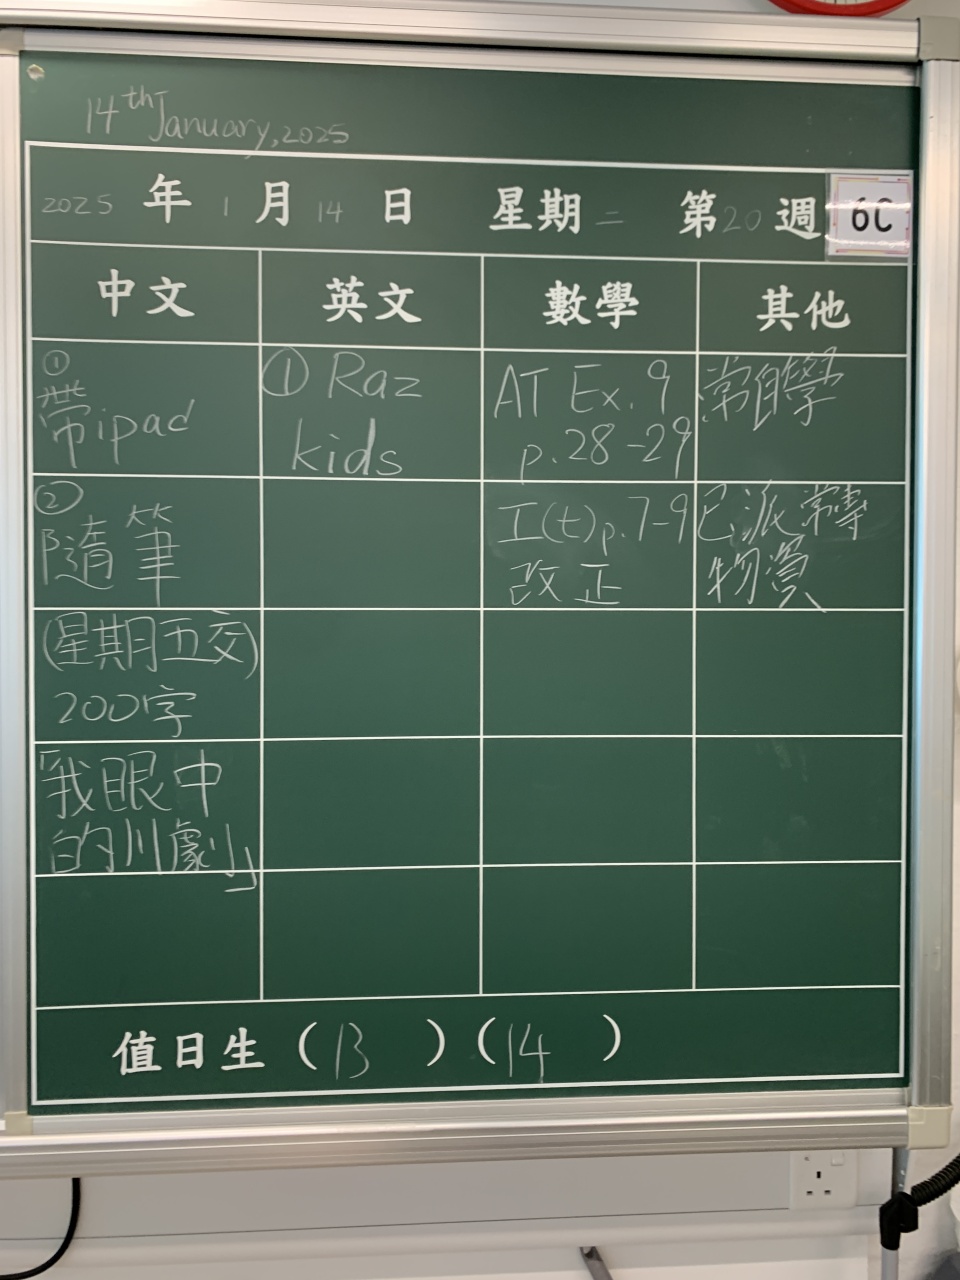 14th January, 2025
2025 年 1 月 14 日 星期 二 第 20 週 6C
中文 英文 數學 其他
①
帶ipad
② 
隨筆
(星期五交)
200字
「我眼中
的川劇」
① Raz
kids
AT Ex. 9
p.28-29
I(t)p.7-9
改正
常自學
已派常專
物資
值日生 ( 13 ) ( 14 )